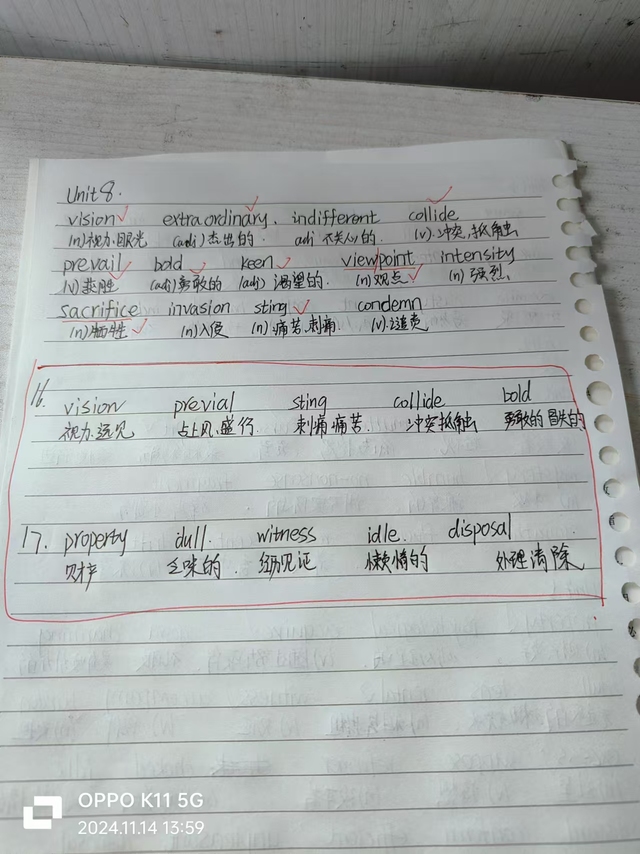 Unit 8.
vision extraordinary. indifferent collide
(n)视力.眼光 (adj)杰出的. adj 不关心的. (v).冲突.抵触
prevail bold keen viewpoint intensity
(v)获胜 (adj)勇敢的 (adj)渴望的. (n)观点 (n)强烈.
sacrifice invasion sting condemn
(n)牺牲 (n)入侵 (n).痛苦.刺痛. (v).谴责
16. vision previal sting collide bold
视力.远见 占上风.盛行. 刺痛 痛苦. 冲突抵触 勇敢的 冒失的
17. property dull. witness idle. disposal
财产 乏味的. 经历见证 懒惰的 处理清除
OPPO K11 5G
2024.11.14 13:59